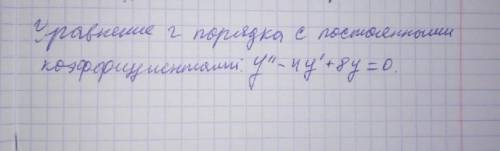 Уравнение 2 порядка с постоянными
коэффициентами. y'' - 4y' + 8y = 0.